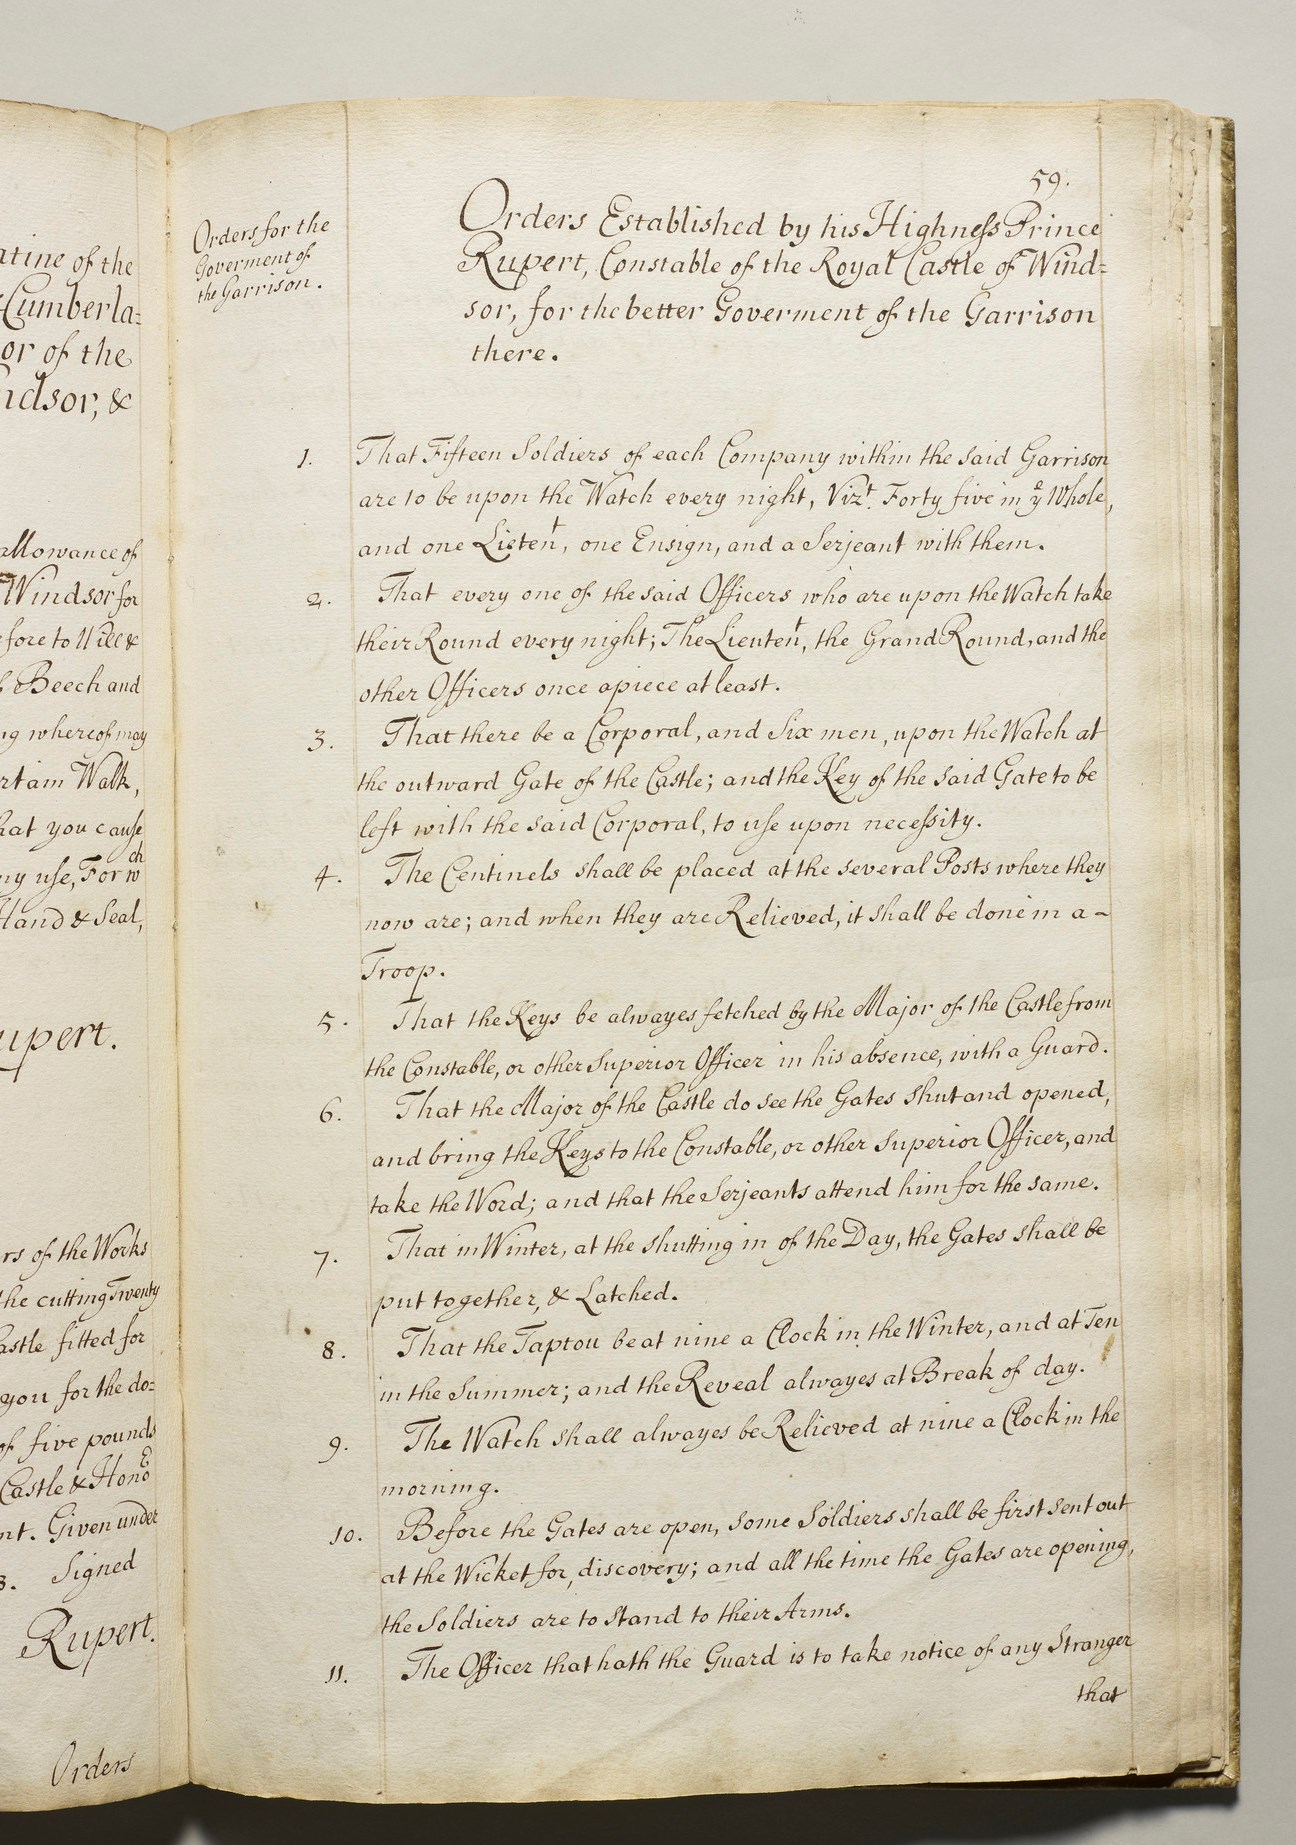 atine of the
Cumberla=
or of the
indsor, &
allowance of
Windsor for
fore to Will &
Beech and
ng whereof may
rtain Walk,
hat you cause
ny use, For wch
Hand & Seal,
upert.
rs of the Works
the cutting Twenty
astle fitted for
you for the do=
of five pounds
Castle & Honoᵉ
nt. Given under
3. Signed
Rupert.
Orders
59.
Orders for the
Goverment of
the Garrison.
Orders Established by his Highness Prince
Rupert, Constable of the Royal Castle of Wind=
sor, for the better Goverment of the Garrison
there.
1. That Fifteen Soldiers of each Company within the said Garrison
are to be upon the Watch every night, Vizt. Forty five in ye Whole,
and one Lieten​t, one Ensign, and a Serjeant with them.
2. That every one of the said Officers who are upon the Watch take
their Round every night; The Lieutent, the Grand Round, and the
other Officers once apiece at least.
3. That there be a Corporal, and Six men, upon the Watch at
the outward Gate of the Castle; and the Key of the said Gate to be
left with the said Corporal, to use upon necessity.
4. The Centinels shall be placed at the several Posts where they
now are; and when they are Relieved, it shall be done in a -
Troop.
5. That the Keys be alwayes fetched by the Major of the Castle from
the Constable, or other Superior Officer in his absence, with a Guard.
6. That the Major of the Castle do see the Gates shut and opened,
and bring the Keys to the Constable, or other Superior Officer, and
take the Word; and that the Serjeants attend him for the same.
7. That in Winter, at the shutting in of the Day, the Gates shall be
put together, & Latched.
8. That the Taptou beat nine a Clock in the Winter, and at Ten
in the Summer; and the Reveal alwayes at Break of day.
9. The Watch shall alwayes be Relieved at nine a Clock in the
morning.
10. Before the Gates are open, some Soldiers shall be first sent out
at the Wicket for, discovery; and all the time the Gates are opening,
the Soldiers are to Stand to their Arms.
11. The Officer that hath the Guard is to take notice of any Stranger
that